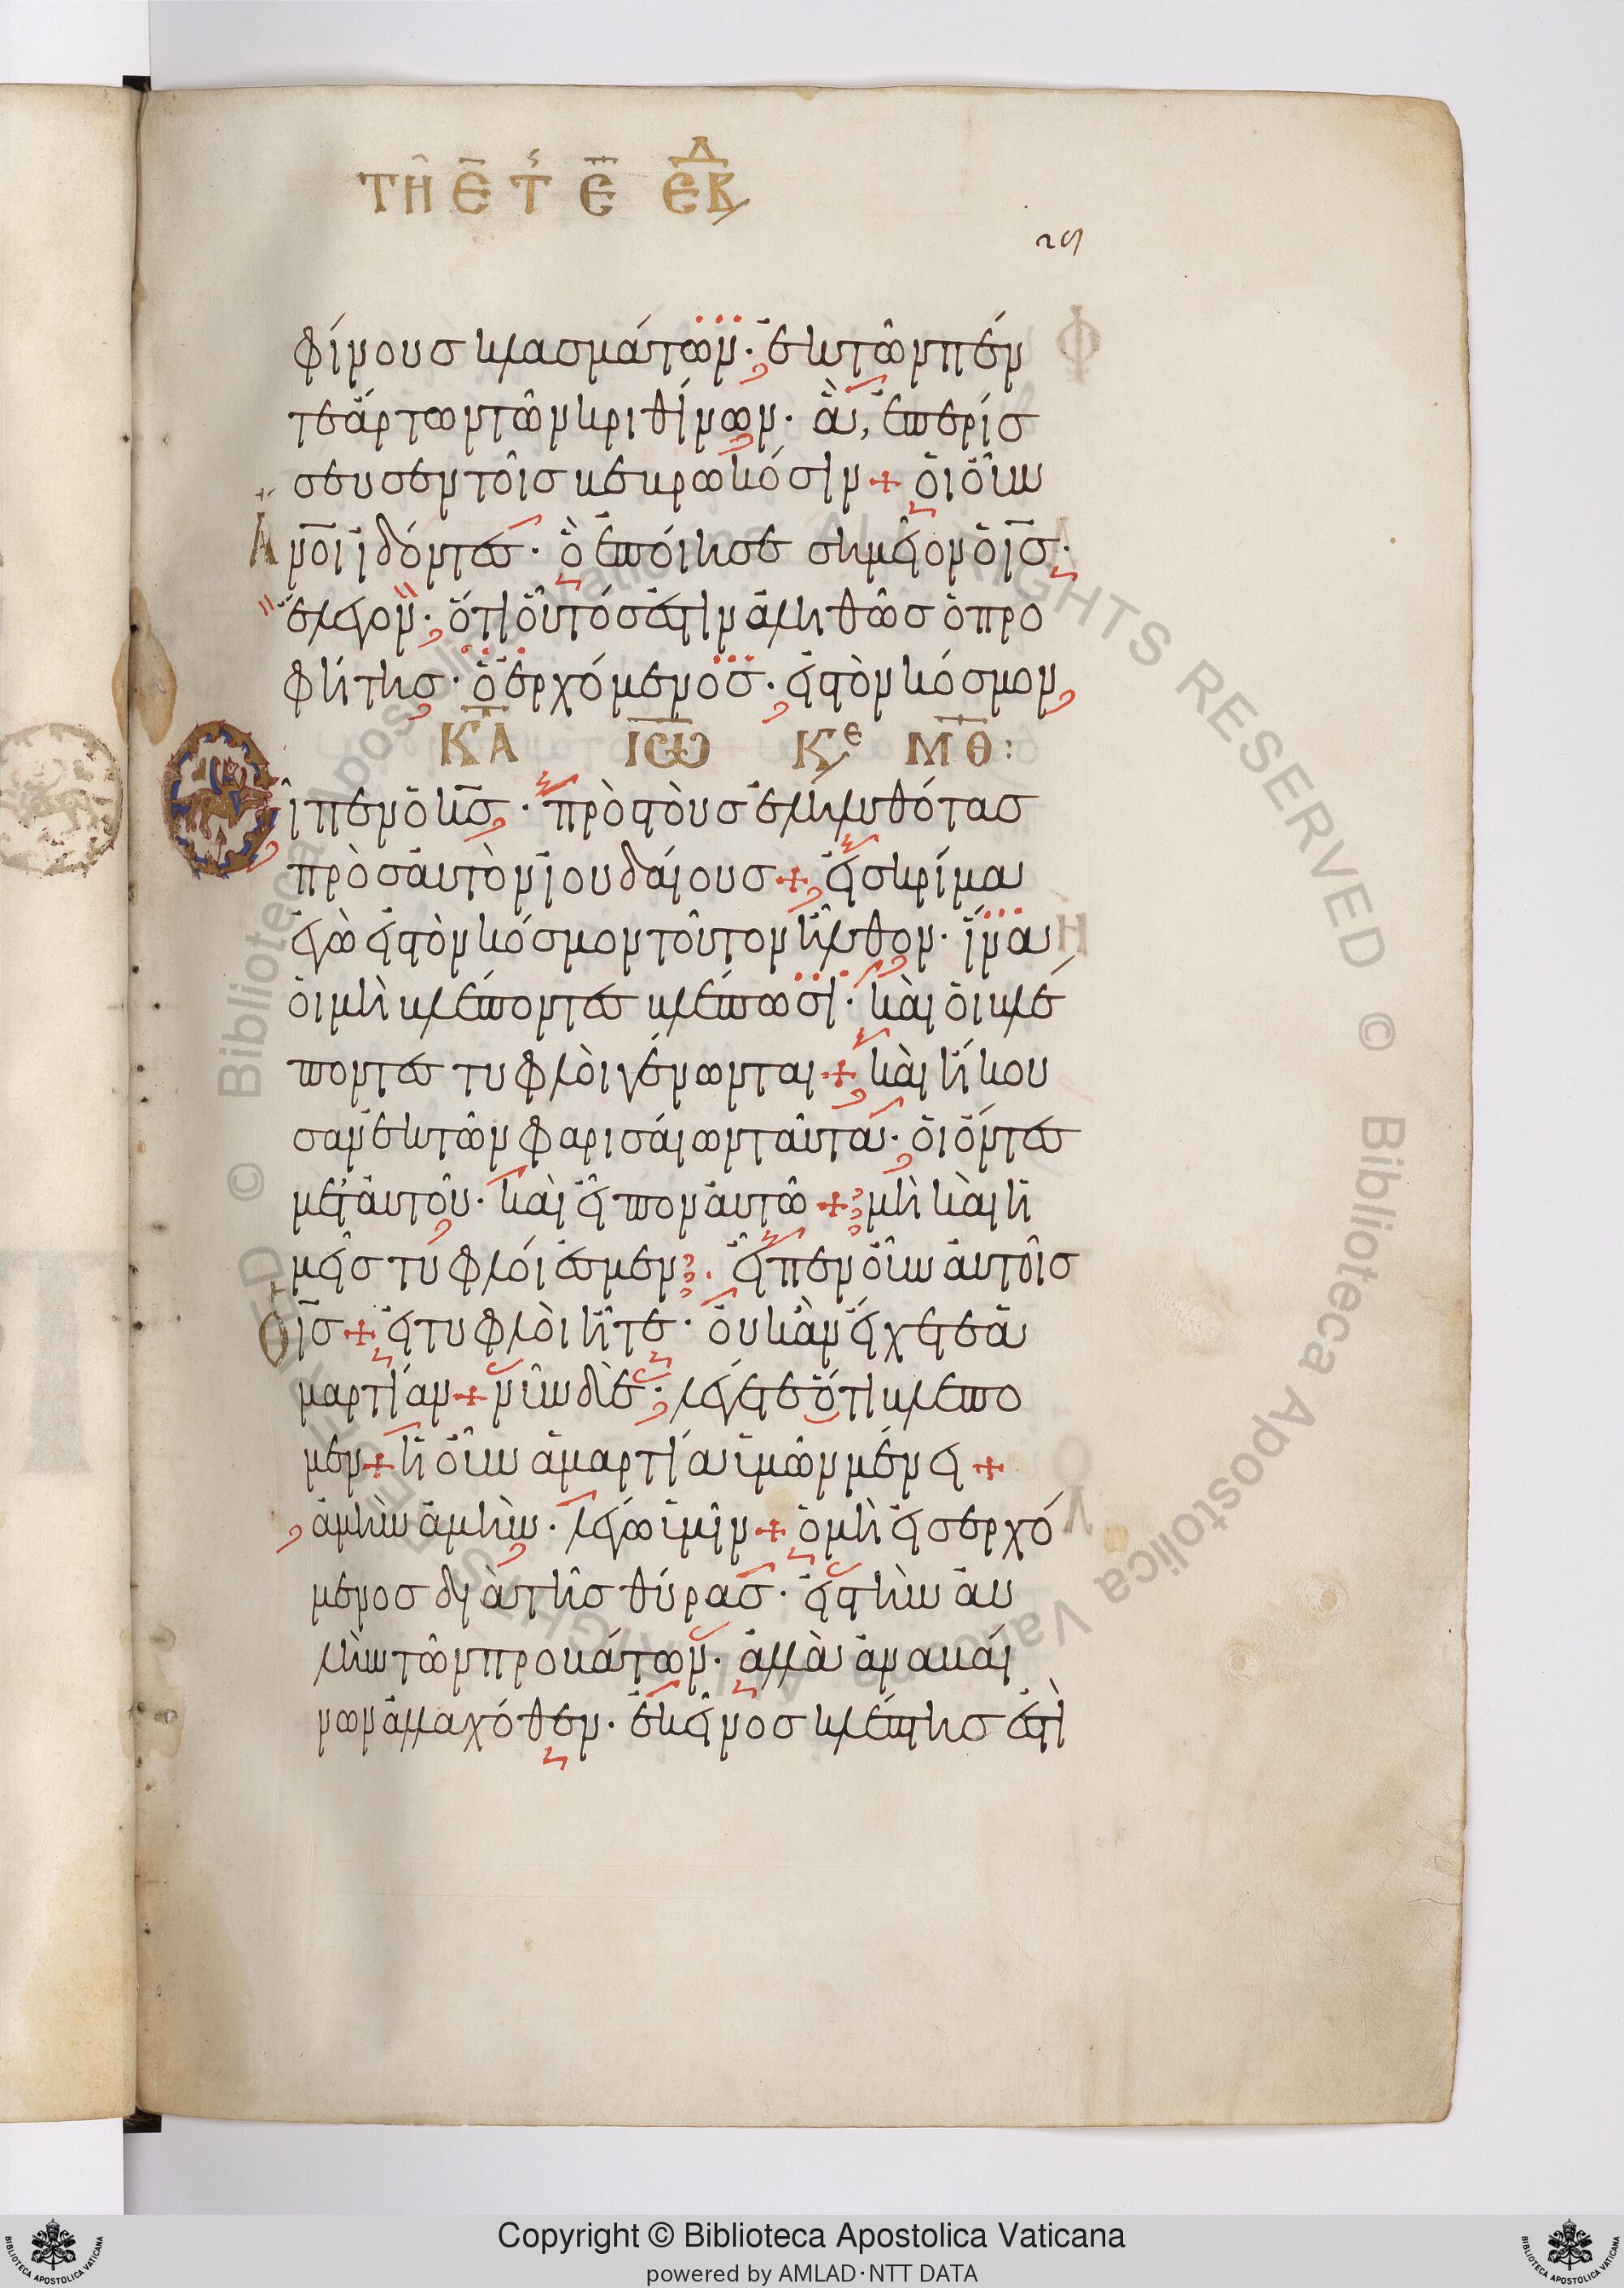 ΤΗ Ε Τ Ε ΕΒΔ
29
φίνους κλασμάτων· ἐκ τῶν πέν
τε ἄρτων τῶν κριθίνων· ἃ ἐπερίσ
σευσεν τοῖς βεβρωκόσιν + ὁι οὖν
ἄνοι ἰδόντες· ὃ ἐποίησε σημεῖον ὁ ις·
ἔλεγον· ὅτι οὗτός ἐστιν ἀληθῶς ὁ προ
φήτης· ὁ ἐρχόμενος· εἰς τὸν κόσμον
ΚΑ ΙΩ Κε ΜΘ:
Εἶπεν ὁ κς· πρὸς τοὺς ἐληλυθότας
πρὸς ἀυτὸν ἰουδάιους + εἰς κρίμα
ἐγὼ εἰς τὸν κόσμον τοῦτον ἦλθον· ἵνα
ὁι μὴ βλέποντες βλέπωσι· κὰι ὁι βλέ
ποντες τυφλὸι γένωνται + κὰι ἤκου
σαν ἐκ τῶν φαρισάιων ταῦτα· ὁι ὄντες
μετ ἀυτοῦ· κὰι εἶπον ἀυτῶ + μὴ κὰι ἡ
μεῖς τυφλόι ἐσμεν; εἶπεν οὖν ἀυτοῖς
Ὁ ις + εἰ τυφλὸι ἦτε· ὀυκ ἂν εἴχετε ἁ
μαρτίαν + νῦν δὲ· λέγετε ὅτι βλέπο
μεν + ἡ οὖν ἁμαρτία ὑμῶν μένει +
ἀμὴν ἀμὴν· λέγω ὑμῖν + ὁ μὴ εἰσερχό
μενος διὰ τῆς θύρας· εἰς τὴν ἀυ
λὴν τῶν προβάτων· ἀλλὰ ἀναβάι
νων ἀλλαχόθεν· ἐκεῖνος κλέπτης ἐστὶ
Copyright © Biblioteca Apostolica Vaticana
powered by AMLAD·NTT DATA